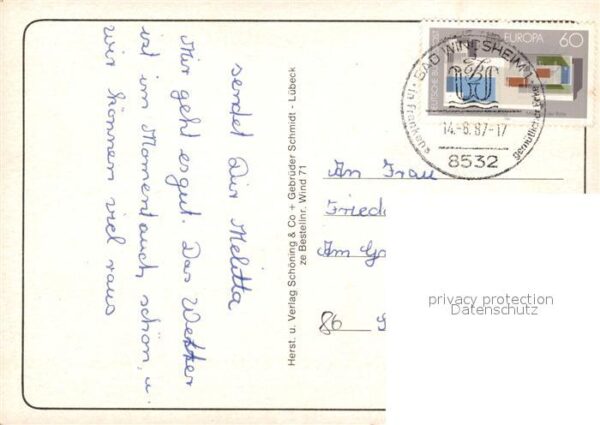 sendet Dir Melitta
Mir geht es gut. Das Wetter
ist im Moment auch schön, u.
wir können viel raus
Herst. u. Verlag Schöning & Co + Gebrüder Schmidt - Lübeck
ze Bestellnr. Wind 71
EUROPA 60
BAD WINDSHEIM 1
in Frankens
14.-8.87-17
8532
An Frau
Fried
Am
86
privacy protection
Datenschutz